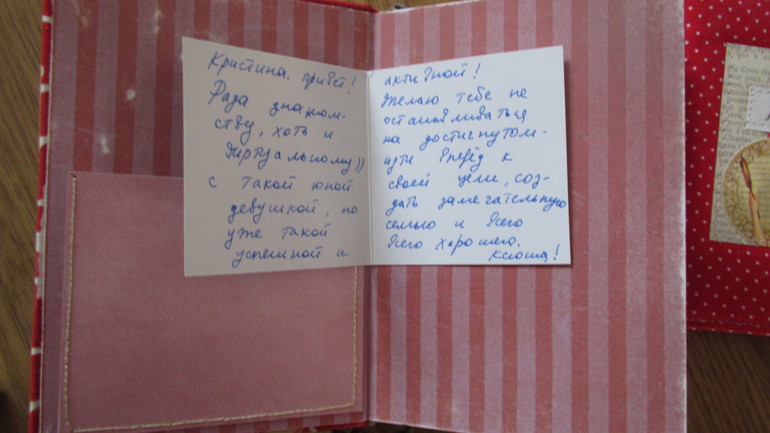 Кристина, привет!
Рада знаком-
ству, хоть и
виртуальному))
с такой юной
девушкой, но
уже такой
успешной и
активной!
Желаю тебе не
останавливаться
на достигнутом-
идти вперёд к
своей цели, соз-
дать замечательную
семью и всего
всего хорошего.
Ксюша!